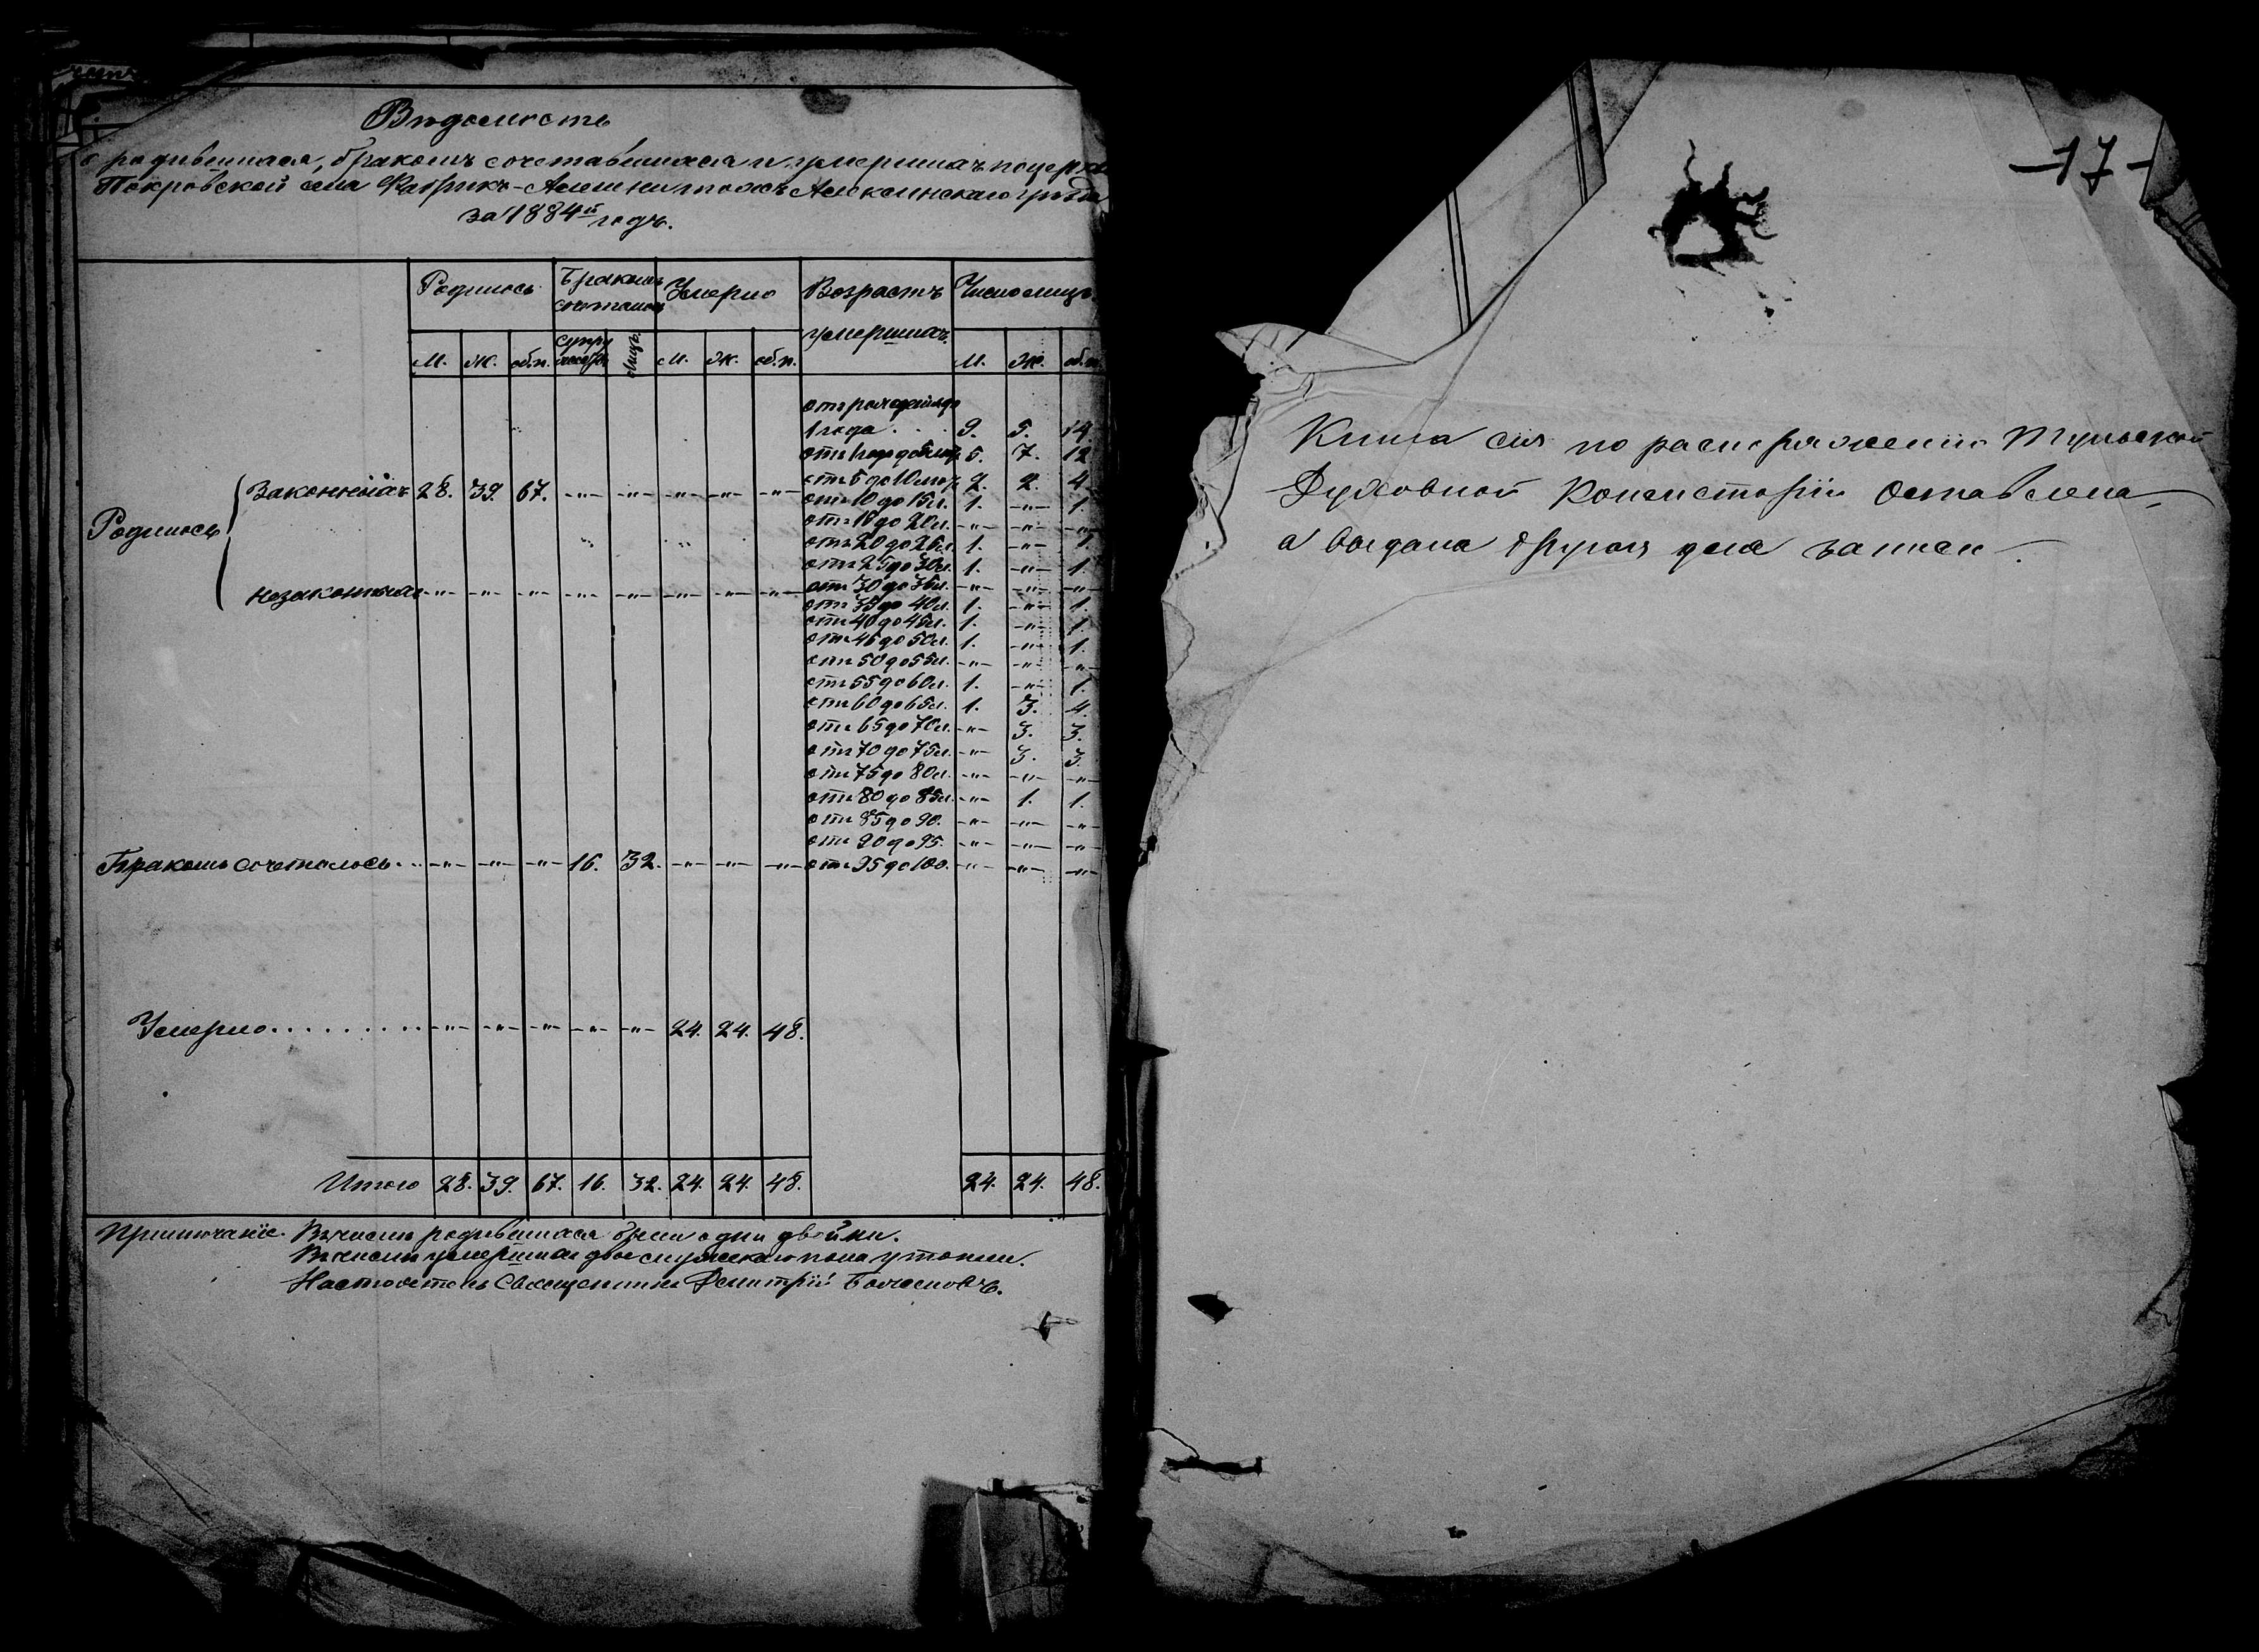 Вѣдомость
о родившихся, бракомъ сочетавшихся и умершихъ по церкви
Покровской села Фабрикъ-Алешни тожъ Алексинскаго уѣзда
за 1884й годъ.
Родилось Бракомъ сочеталось Умерло Возрастъ умершихъ. Число лицъ.
М. Ж. об.п. супружествъ лицъ М. Ж. об.п. М. Ж. об.п.
отъ рожденія до
1 года . . . 9. 5. 14.
отъ 1 года до 5 лѣтъ 5. 7. 12
отъ 5 до 10 лѣтъ 2. 2. 4
Родилось
Законныхъ 28. 39. 67. -"- -"- -"- -"- -"-
отъ 10 до 15 л. 1. -"- 1.
отъ 15 до 20 л. -"- -"- -"-
отъ 20 до 25 л. 1. -"- 1.
отъ 25 до 30 л. 1. -"- 1.
незаконныхъ -"- -"- -"- -"- -"- -"- -"- -"-
отъ 30 до 35 л. -"- -"- -"-
отъ 35 до 40 л. 1. -"- 1.
отъ 40 до 45 л. 1. -"- 1.
отъ 45 до 50 л. 1. -"- 1.
отъ 50 до 55 л. -"- -"- -"-
отъ 55 до 60 л. 1. -"- 1.
отъ 60 до 65 л. 1. 3. 4.
отъ 65 до 70 л. -"- 3. 3.
отъ 70 до 75 л. -"- 3. 3.
отъ 75 до 80 л. -"- -"- -"-
отъ 80 до 85 л. -"- 1. 1.
отъ 85 до 90. -"- -"- -"-
отъ 90 до 95. -"- -"- -"-
Бракомъ сочеталось. . . -"- -"- -"- 16. 32. -"- -"- -"-
отъ 95 до 100. -"- -"- -"-
Умерло. . . . . . . . -"- -"- -"- -"- -"- 24. 24. 48.
Итого 28. 39. 67. 16. 32. 24. 24. 48. 24. 24. 48.
Примѣчаніе. Въ числѣ родившихся были одни двойни.
Въ числѣ умершихъ двое мужскаго пола утонли.
Настоятель Священникъ Димитрій
-17-
Книга сія по распоряженію Тульской
Духовной Консисторіи оставлена,
а выдана другая для записи.